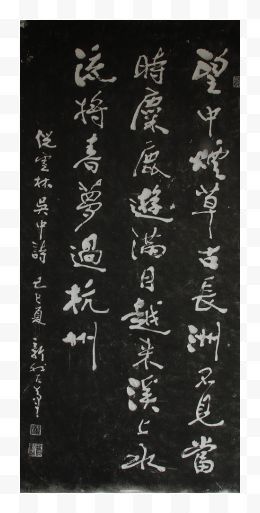 望中煙草古長洲不見當
時麋鹿遊滿目越来溪上水
流將春夢過杭州
倪雲林吳中詩 己巳夏 新